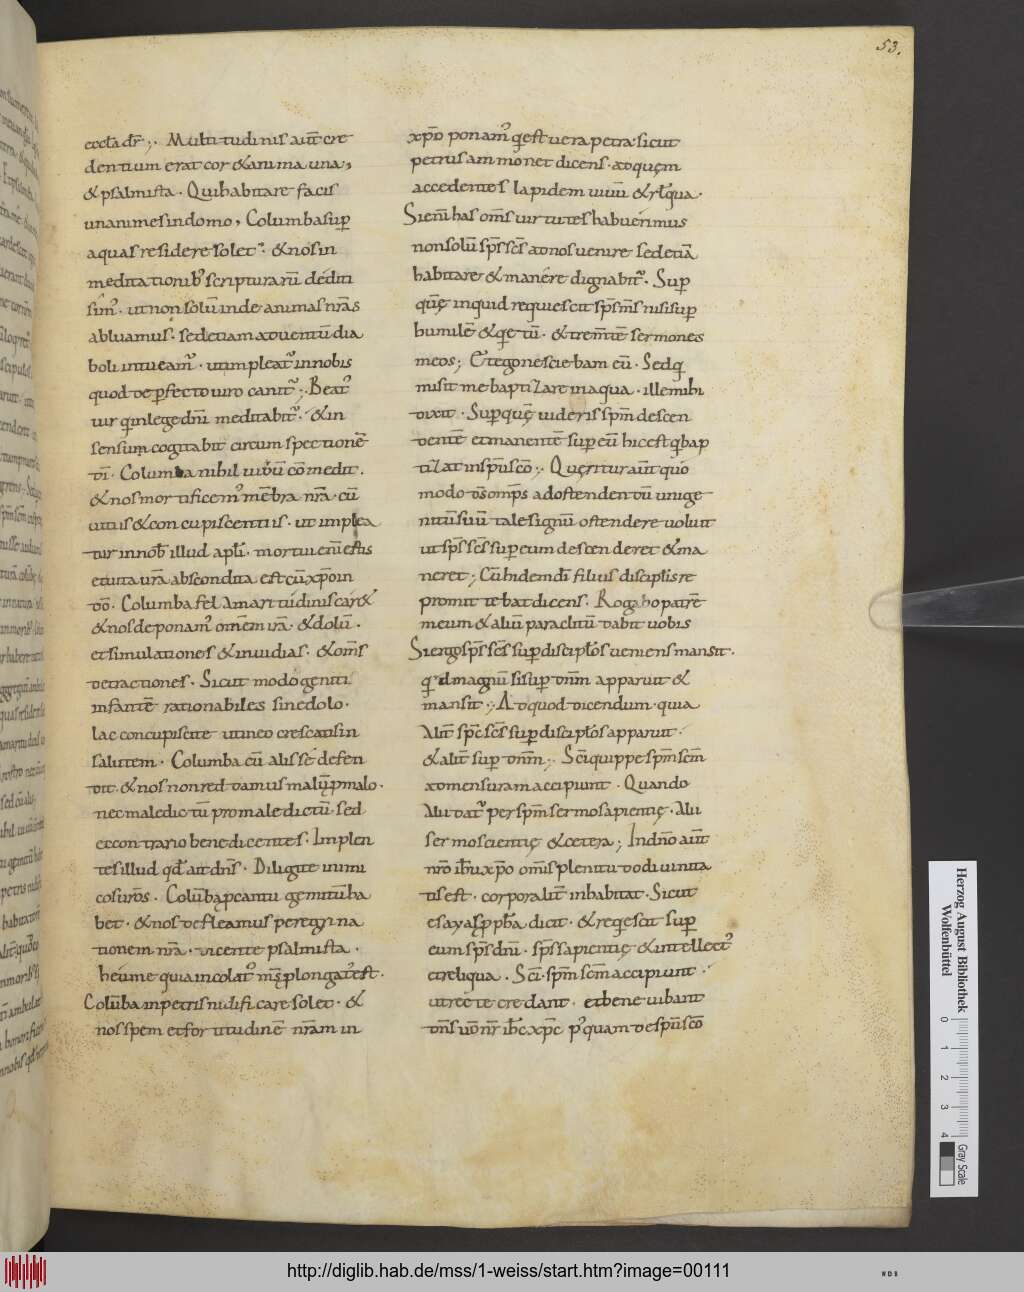 53.
eccla dr̄ ;. Multitudinis aūt cre
dentium erat cor & anima una ;
& psalmista . Qui habitare facis
unanimes in domo ; Columba sup̄
aquas residere solet . & nos in
meditationib; scripturarū dediti
simꝰ . ut non solū inde animas nr̄as
abluamus . sed etiam aduentū dia
boli intueamꝰ . ut impleatꝰ in nobis
quod de perfecto uiro canitꝰ ;. Beatꝰ
uir qui in lege dn̄i meditabitꝰ . & in
sensum cogitabit circumspectionē
dī . Columba nihil uiuū comedit .
& nos mortificemꝰ mēbra nr̄a . cū
uitiis & concupiscentiis . ut implea
tur in nob̄ illud apłi . mortui enī estis
et uita ur̄a abscondita est cū xp̄o in
dō . Columba fel amaritudinis car&
& nos deponamꝰ omnem irā . & dolū .
et simulationes & inuidias . & om̄s
detractiones . Sicut modo geniti
infantē rationabiles sine dolo .
lac concupiscite ut in eo crescatis in
salutem . Columba cū alis se defen
dit . & nos non reddamus malū p malo .
nec maledictū pro maledictū . sed
e contrario benedicentes . Implen
tes illud qd̄ ait dn̄s . Diligite inimi
cos uros̄ . Colūba p cantu gemitū ha
bet . & nos defleamus peregrina
tionem nr̄a . dicente psalmista .
heu me quia incolatꝰ mꝰ plongatꝰ est .
Colūba in petris nidificare solet . &
nos spem et fortitudinē nr̄am in
xp̄o ponamꝰ q̄ est uera petra . sicut
petrus ammonet dicens . ad quęm
accedentes lapidem uiuū & rłqua .
Si enī has om̄s uirtutes habuerimus
non solū sp̄s sc̄s ad nos uenire sed etiā
habitare & manere dignabitꝰ . Sup
quē inquid requiescit sp̄s m̄s nisi sup
humilē & q̄etū . & trem̄tē sermones
meos ; Et ego nesciebam eū . Sed q̄
misit me baptizare in aqua . ille mihi
dixit . Sup quē uideris sp̄m descen
dentē et manentē sup eū hic est q̄ bap
tizat in sp̄u sc̄o ;. Quęritur aūt quo
modo ds̄ om̄ps ad ostendendū unige
nitū suū tale signū ostendere uoluit
ut sp̄s sc̄s sup eum descenderet & ma
neret ; Cū hidemdī filius discipłis re
promittebat dicens . Rogabo patrē
meum & aliū paraclitū dabit uobis
Si ergo sp̄s sc̄s sup discipłos ueniens mansit .
qd magnū si sup dnm̄ apparuit &
mansit ;. Ad quod dicendum . quia
Alit̄ sp̄s sc̄s sup discipłos apparuit .
& alit̄ sup dnm̄ ;. Sc̄i quippe sp̄m sc̄m
ad mensuram accipiunt . Quando
Alii datꝰ per sp̄m sermo sapientię . Alii
sermo scientię & cetera ; In dn̄o aūt
nr̄o ihū xp̄o om̄is plenitudo diuinita
tis est . corporalit̄ inhabitat . Sicut
esayas pph̄a dicit . & req̄escit sup
eum sp̄s dn̄i . sp̄s sapientię & intellectꝰ
et reliqua . Sc̄i . sp̄m sc̄m accipiunt .
ut recte credant . et bene uibant
dn̄s uō nr̄ ihc̄ xp̄c pꝰquam de sp̄u sc̄o
Herzog August Bibliothek
Wolfenbüttel
0 1 2 3 4
Gray Scale
http://diglib.hab.de/mss/1-weiss/start.htm?image=00111